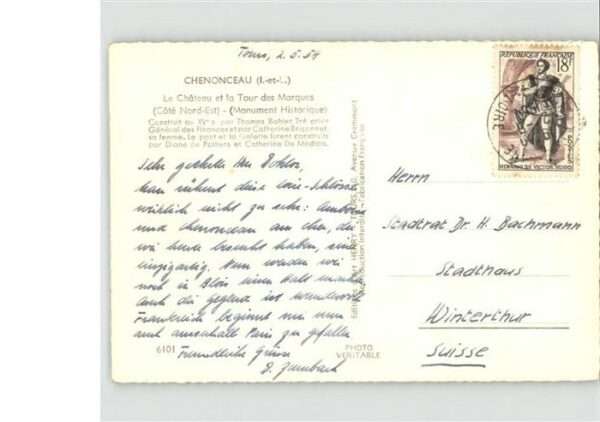 Tours, 2.5.54
CHENONCEAU (I.-et-L.)
Le Château et la Tour des Marques
(Côté Nord-Est) - (Monument Historique)
Construit au XVe s. par Thomas Bohier
Général des Finances et par Catherine Briçonnet
sa femme. Le pont et la Galerie furent construits
par Diane de Poitiers et Catherine De Médicis.
Sehr geehrter Herr Doktor,
Man rühmt diese Loire-Schlösser
wirklich nicht zu sehr: Amboise
und Chenonceau am Cher, die
wir heute besucht haben, sind
einzigartig. Nun werden wir
noch in Blois einen Halt machen
Auch die Gegend ist wundervoll
Frankreich beginnt mir nun
auch ausserhalb Paris zu gefallen
Freundliche Grüsse
6101
PHOTO
VERITABLE
REPUBLIQUE FRANÇAISE
18F
HERNANI DE VICTOR HUGO
Herrn
Stadtrat Dr. H. Bachmann
Stadthaus
Winterthur
Suisse